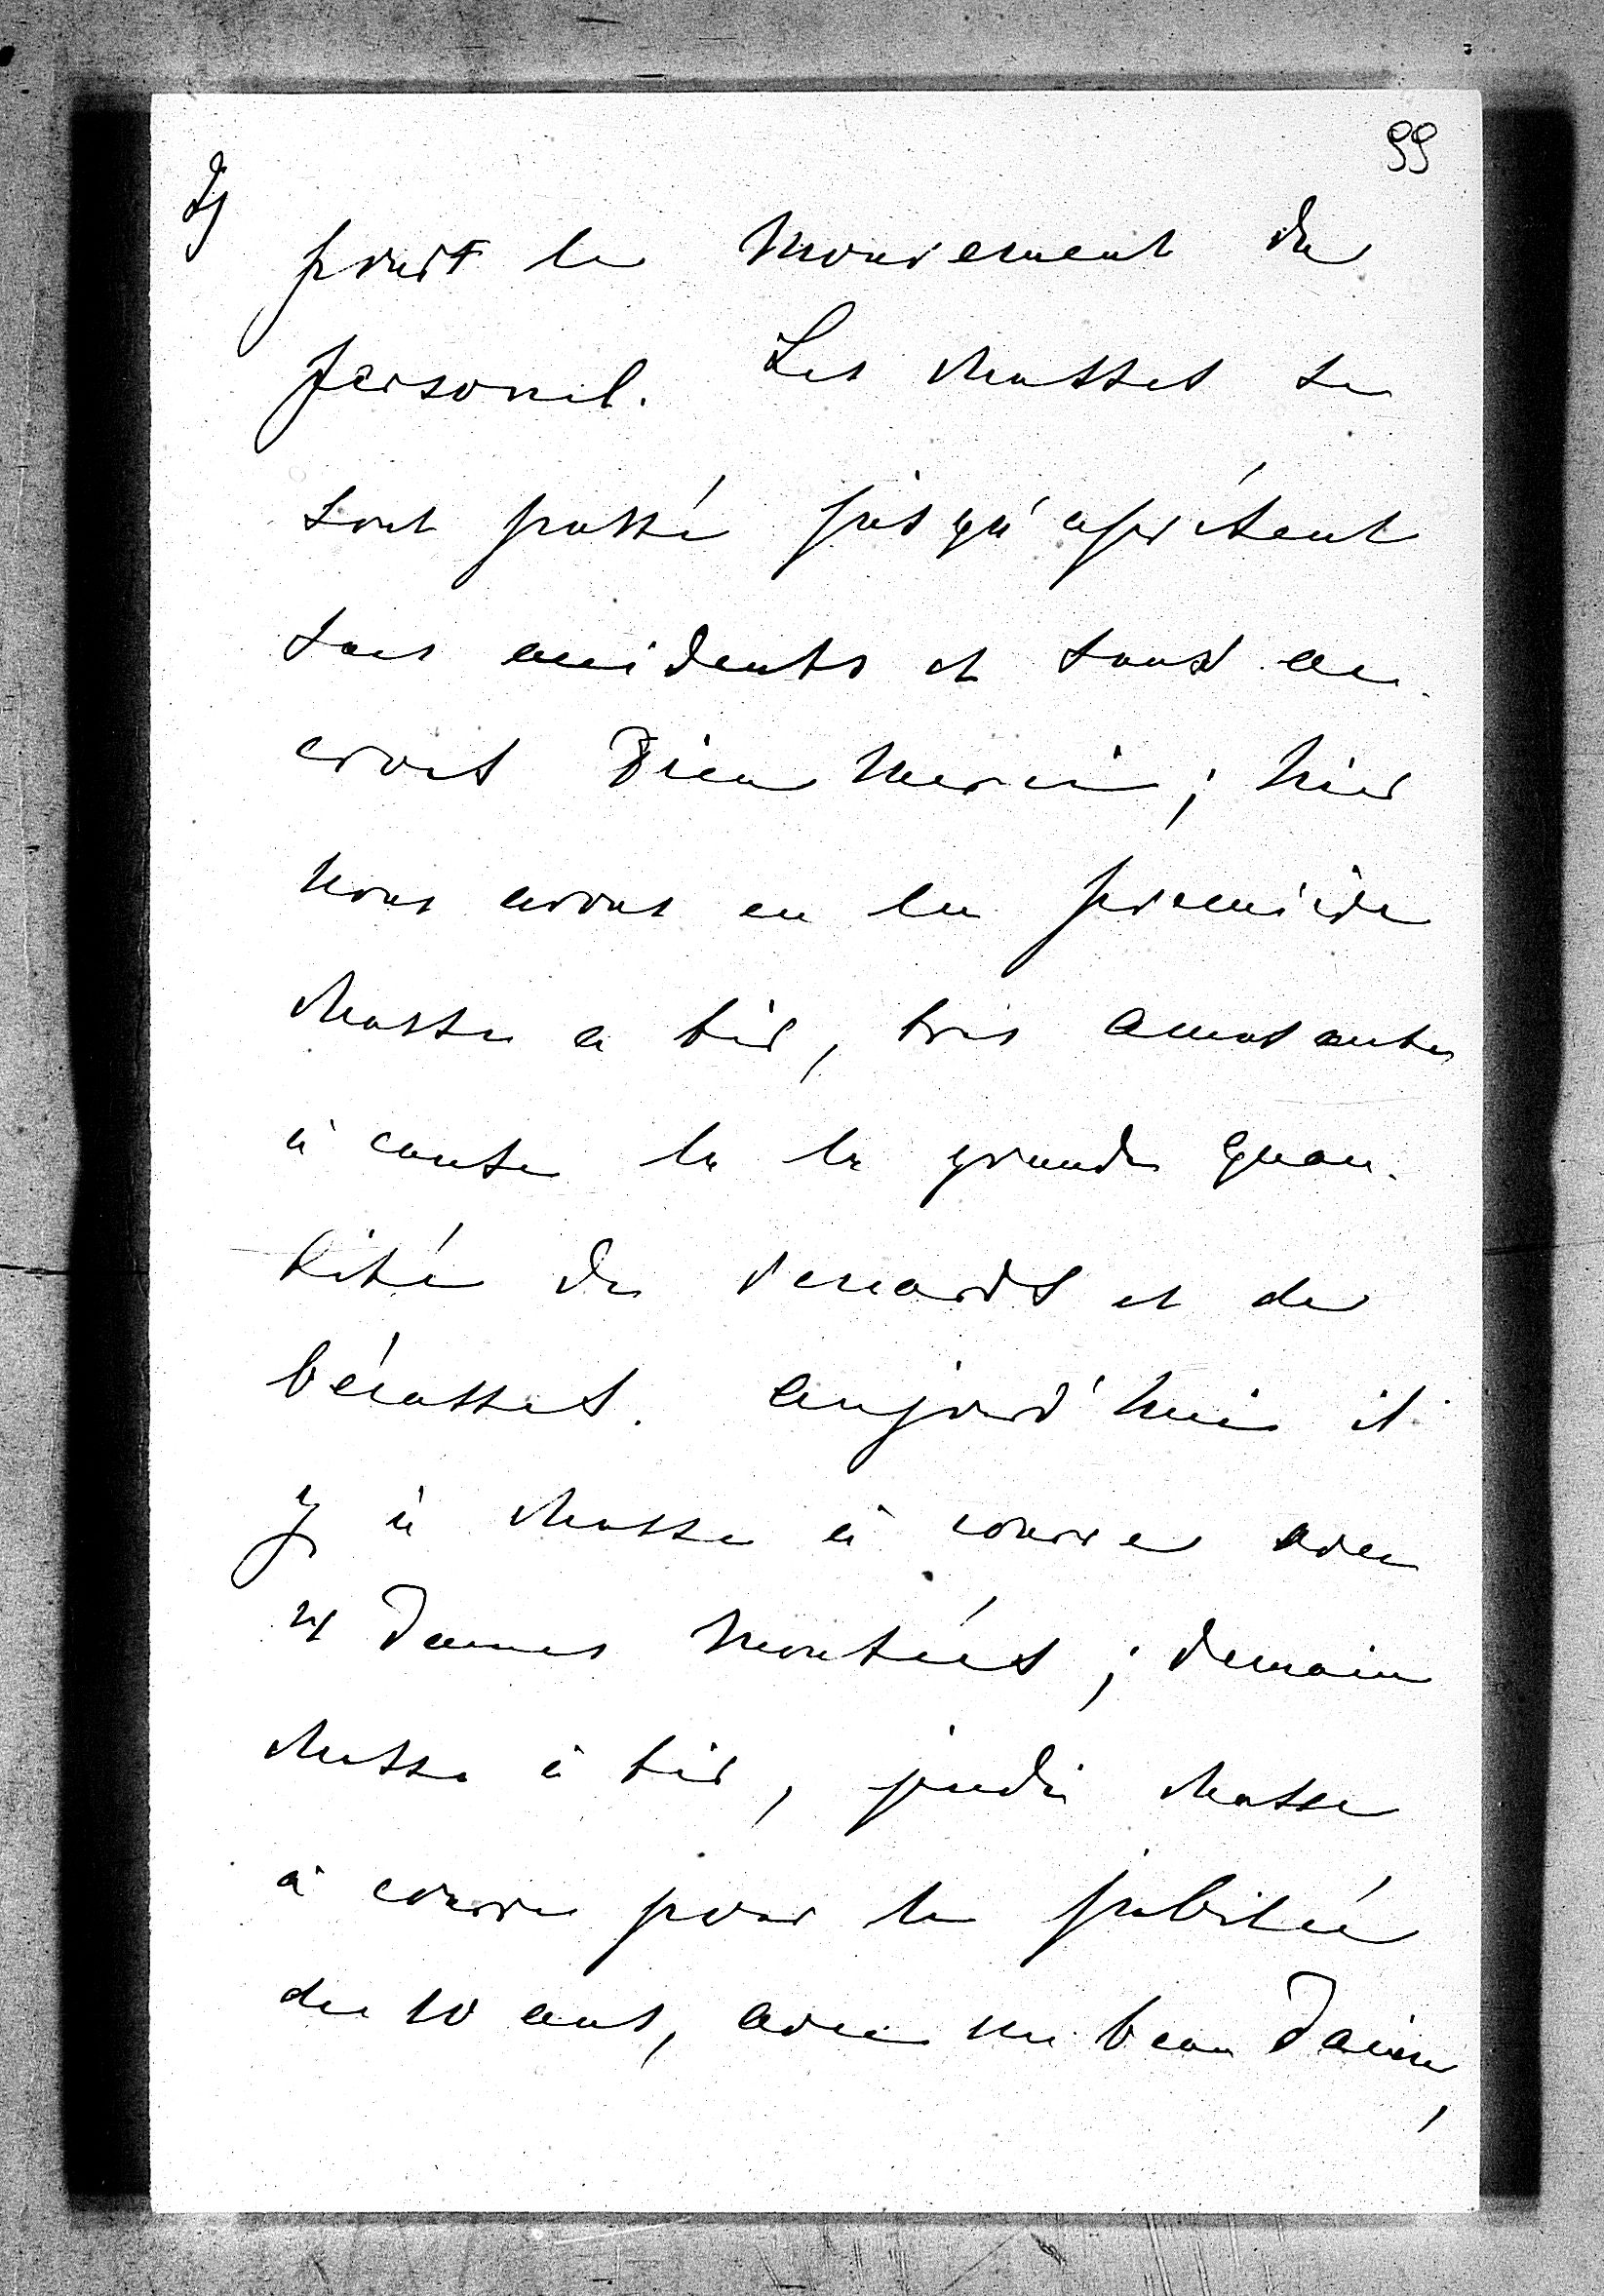 99
pour le mouvement du
personel. Les chasses se
sont passé jusqu'aprésent
sans accidents et sans ac-
crocs Dieu merci; hier
nous avons eu la première
chasse a tir, très amusante
à cause de la grande quan-
tité de renards et de
bécasses. aujourd'hui il
y à chasse à courre avec
4 dames montées; demain
chasse à tir, jeudi chasse
à courre pour le jubilée
de 10 ans, avec un beau daim,